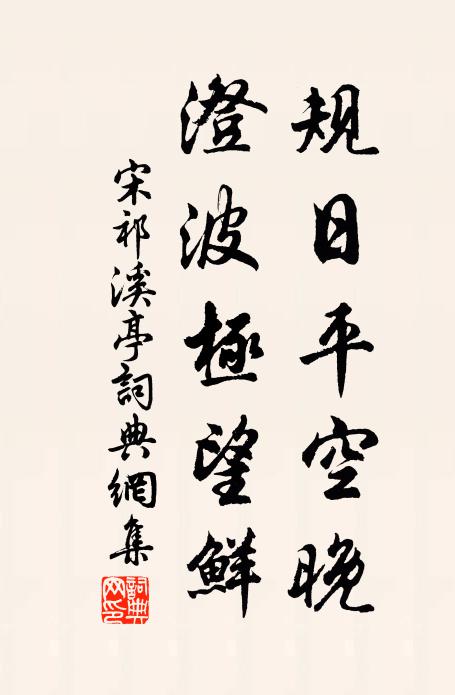 規日平空晚
澄波極望鮮
宋祁溪亭詞典網集
詞典
网印